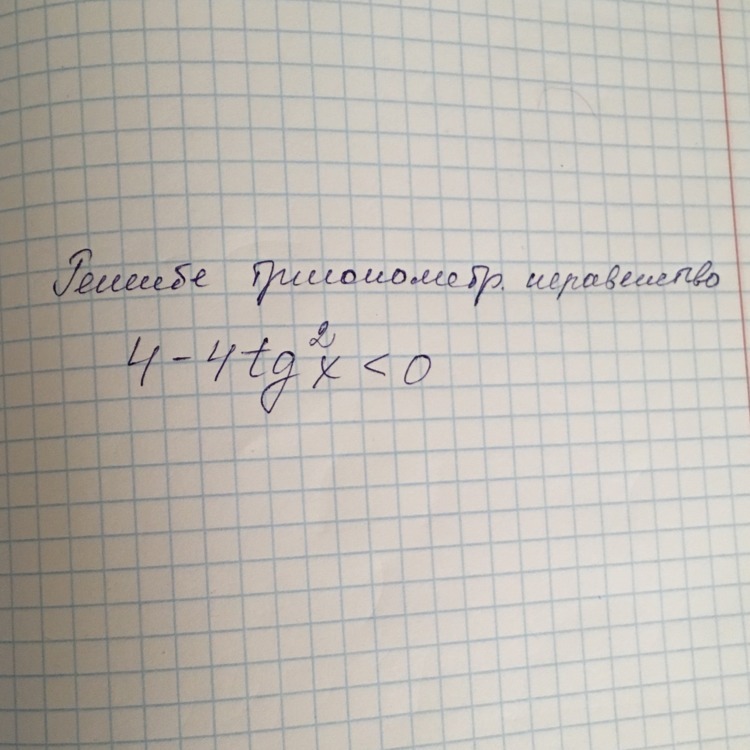 Решите тригонометр. неравенство
4 - 4tg²x < 0